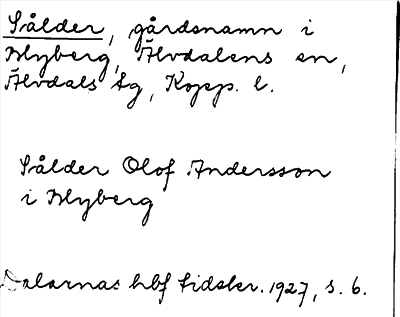 Sålder, gårdsnamn i
Blyberg, Älvdalens sn,
Älvdals tg, Kopp. l.
Sålder Olof Andersson
i Blyberg
Dalarnas hbf tidskr. 1927, s. 6.